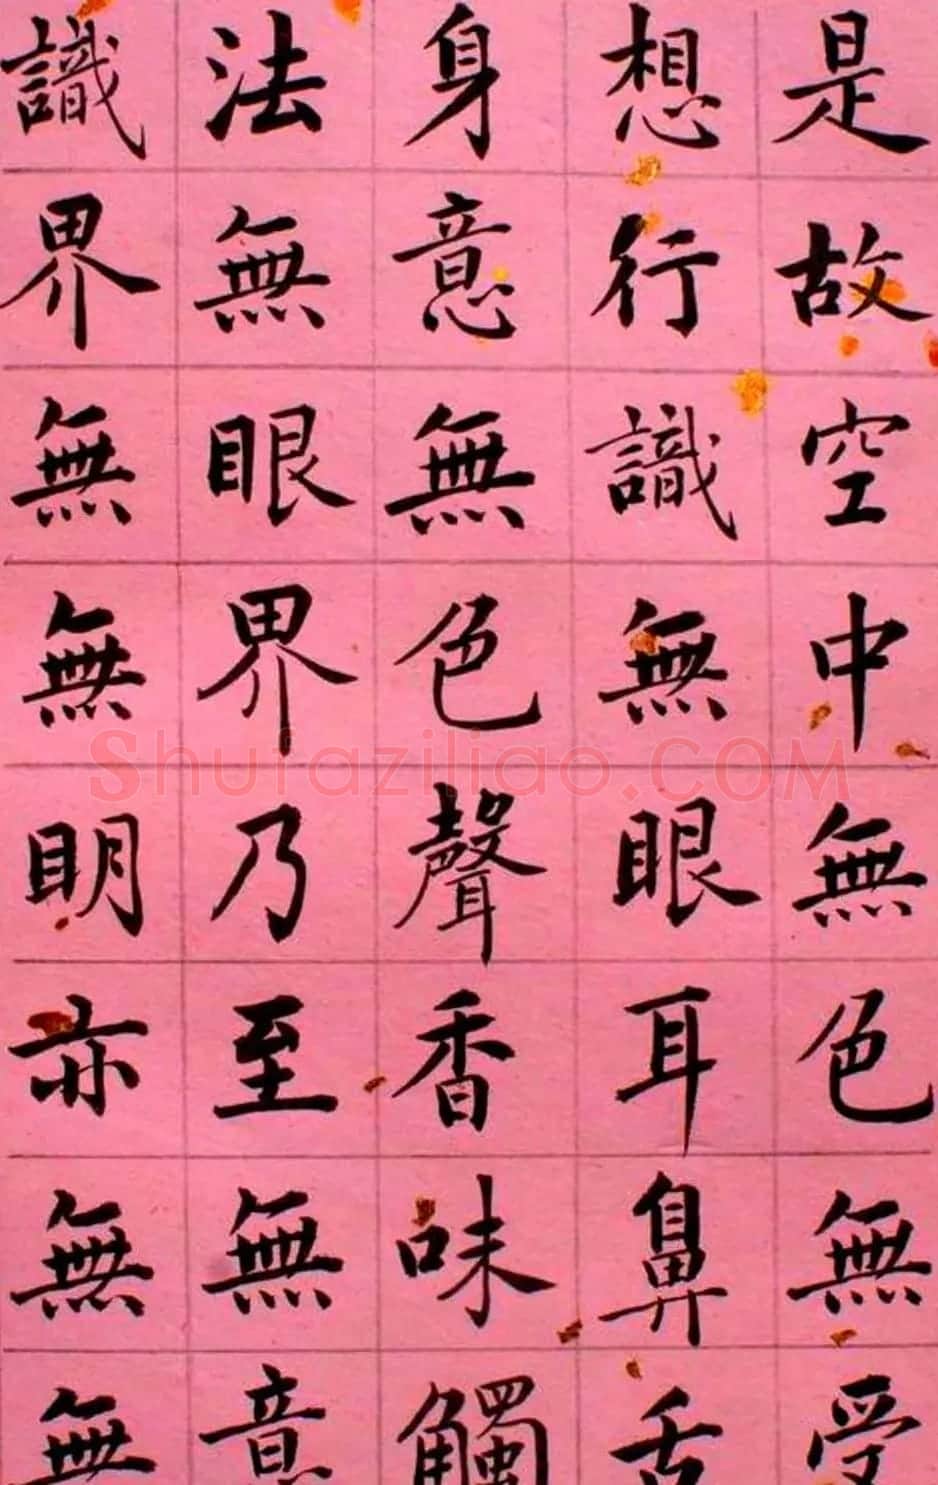 是故空中無色無受
想行識無眼耳鼻舌
身意無色聲香味觸
法無眼界乃至無意
識界無無明亦無無
Shufaziliao.COM